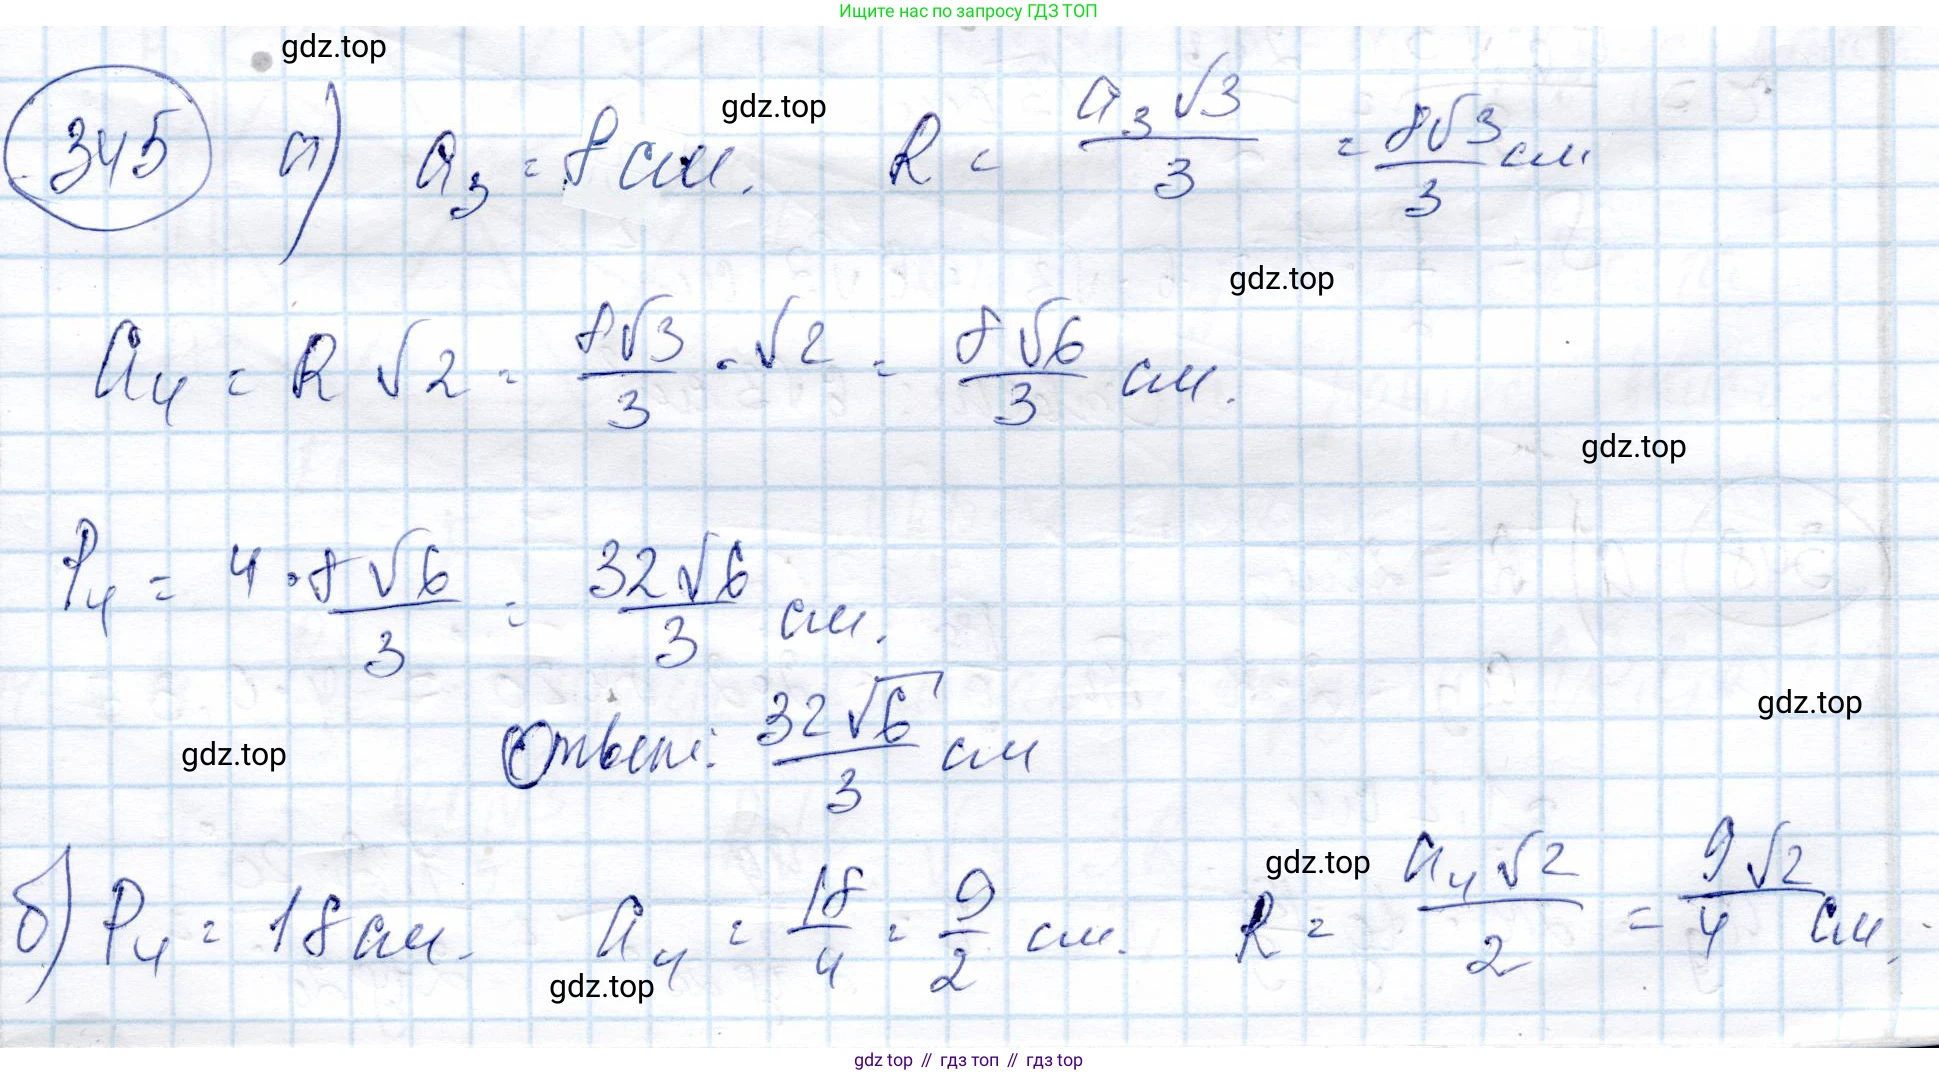 Ищите нас по запросу ГДЗ ТОП
gdz.top
gdz.top
345 а) a₃ = 8 см. R = a₃√3/3 = 8√3/3 см
gdz.top
a₄ = R√2 = 8√3/3 · √2 = 8√6/3 см.
gdz.top
P₄ = 4 · 8√6/3 = 32√6/3 см.
gdz.top
gdz.top
Ответ: 32√6/3 см
gdz.top
б) P₄ = 18 см. a₄ = 18/4 = 9/2 см. R = a₄√2/2 = 9√2/4 см.
gdz.top
gdz top // гдз топ // gdz top